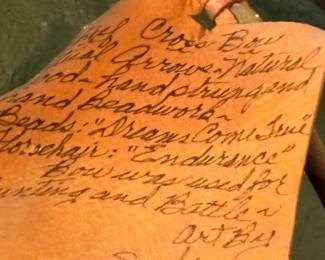 Cross Bow
Arrows~Natural
hand strung and
hand Beadwork~
Beads: "Dreams Come True"
Horsehair: "Endurance"
Bow was used for
Hunting and Battle~
Art By